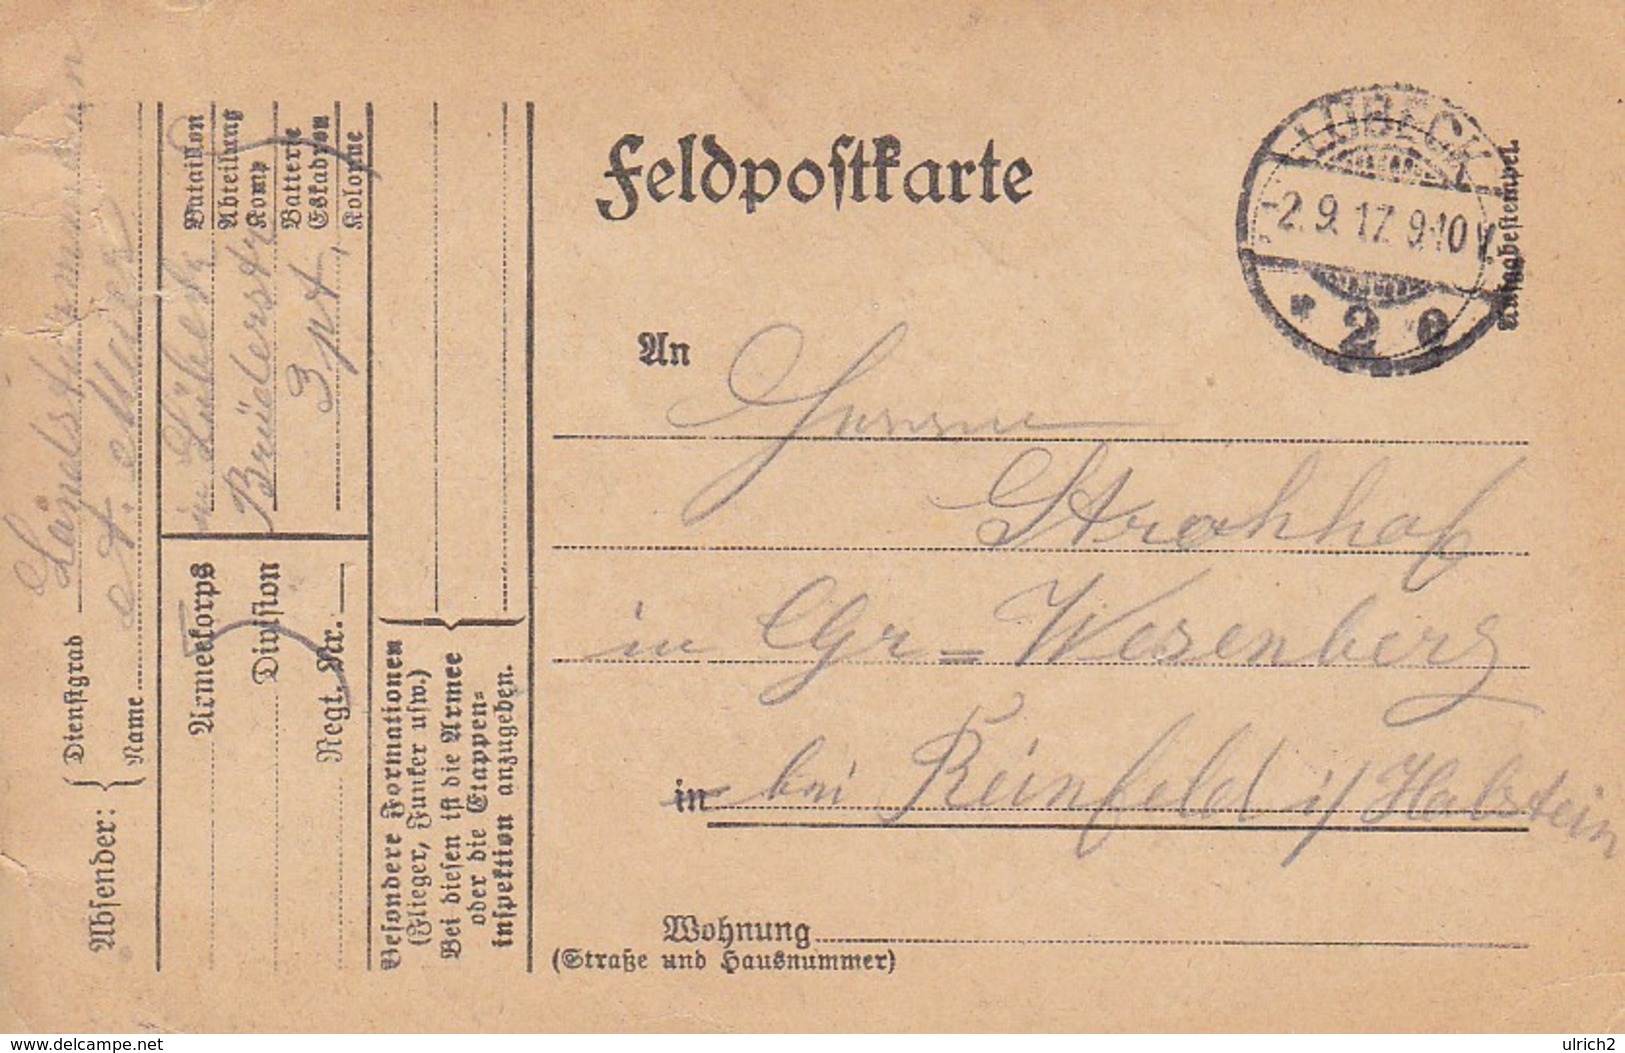 Feldpostkarte
LÜBECK
-2.9.17. 9-10 V.
* 2 e
Ausgabestempel.
An
Strohhof
in Gr = Wesenberg
in bei Reinfeld i/ Holstein
Wohnung
(Straße und Hausnummer)
Absender:
Dienstgrad Landsturmmann
Name A.
Bataillon
Abteilung
Komp
Batterie
Eskadron
Kolonne
in Lübeck
Brüderstr
3
Armeekorps
Division
Regt. Nr.
Besondere Formationen
(Flieger, Funker usw.)
Bei diesen ist die Armee
oder die Etappen=
inspektion anzugeben.
www.delcampe.net
ulrich2